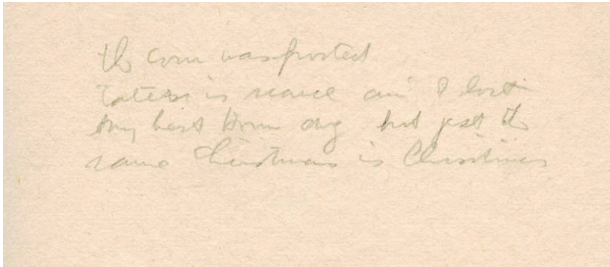 th corn was frosted
taters is scarce an' I lost
my best dog but jest th
same Christmas is Christmas